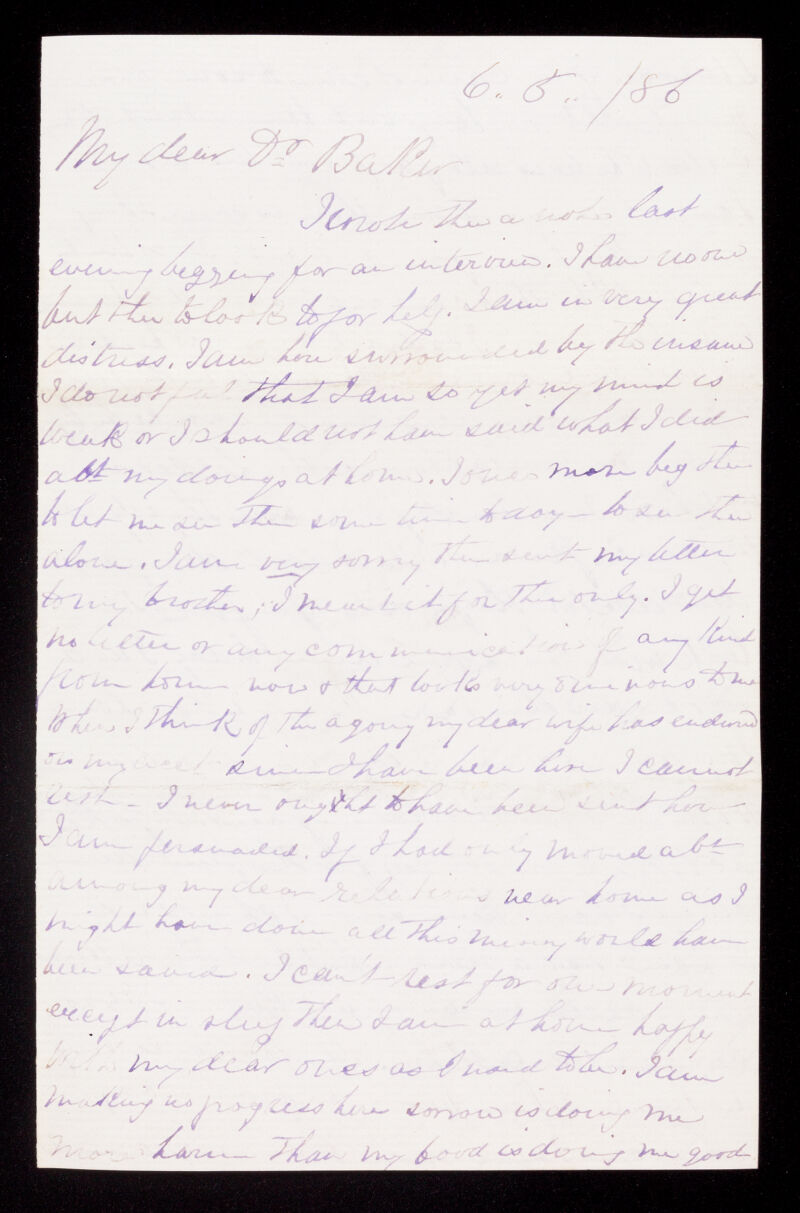 6. 5. /86
My dear Dr Baker
I wrote thee a note last
evening begging for an interview. I have no one
but thee to look to for help. I am in very great
distress. I am here surrounded by the insane
I do not feel that I am so yet my mind is
weak or I should not have said what I did
abt my doings at home. I once more beg thee
to let me see thee some time today – to see thee
alone. I am very sorry thee sent my letter
to my brother; I meant it for thee only. I get
no letter or any communication of any kind
from home now & that looks very ominous to me
When I think of the agony my dear wife has endured
on my acct since I have been here I cannot
rest – I never ought to have been sent here
I am persuaded. If I had only moved abt
among my dear relations near home as I
might have done all this misery would have
been saved. I can't rest for one moment
except in sleep then I am at home happy
with my dear ones as I used to be. I am
making no progress here sorrow is doing me
more harm than my food is doing me good